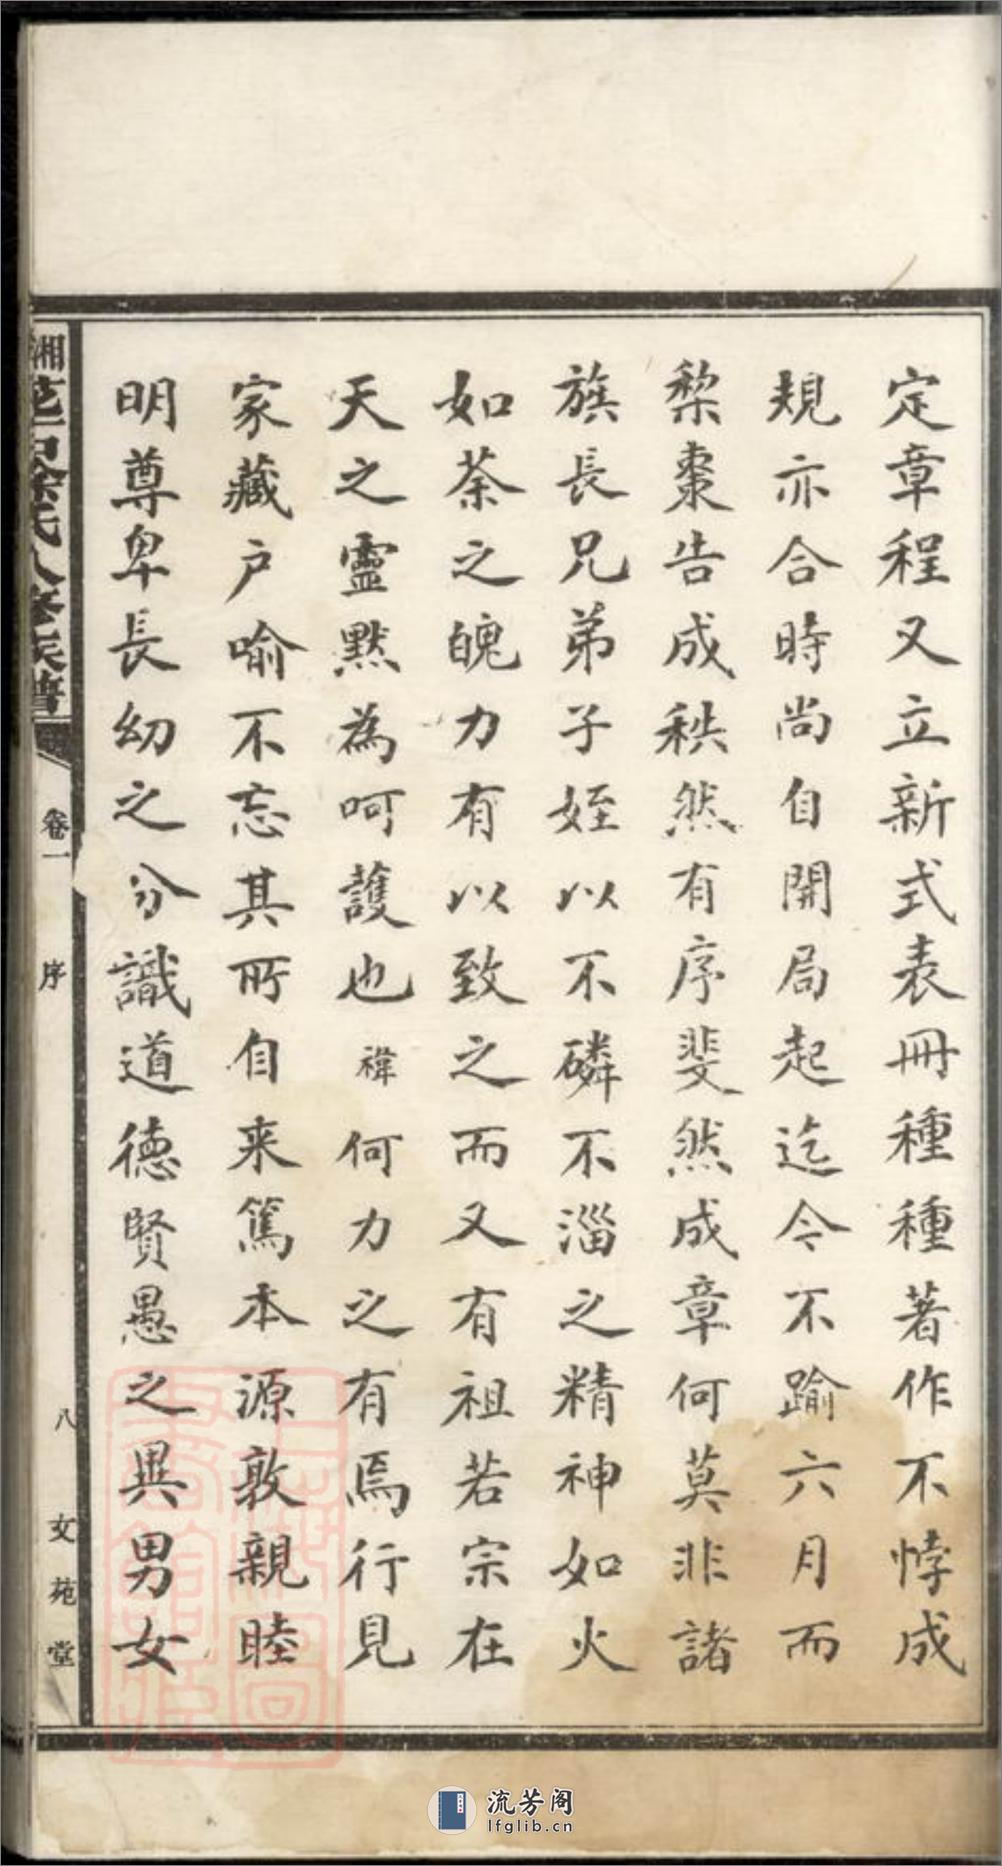 定章程又立新式表冊種種著作不悖成
規亦合時尚自開局起迄今不踰六月而
梨棗告成秩然有序斐然成章何莫非諸
族長兄弟子姪以不磷不淄之精神如火
如荼之魄力有以致之而又有祖若宗在
天之靈默為呵護也禕何力之有焉行見
家藏户喻不忘其所自来篤本源敦親睦
明尊卑長幼之分識道德賢愚之異男女
氏八修族譜
卷一
序
八
文苑堂
流芳阁
lfglib.cn